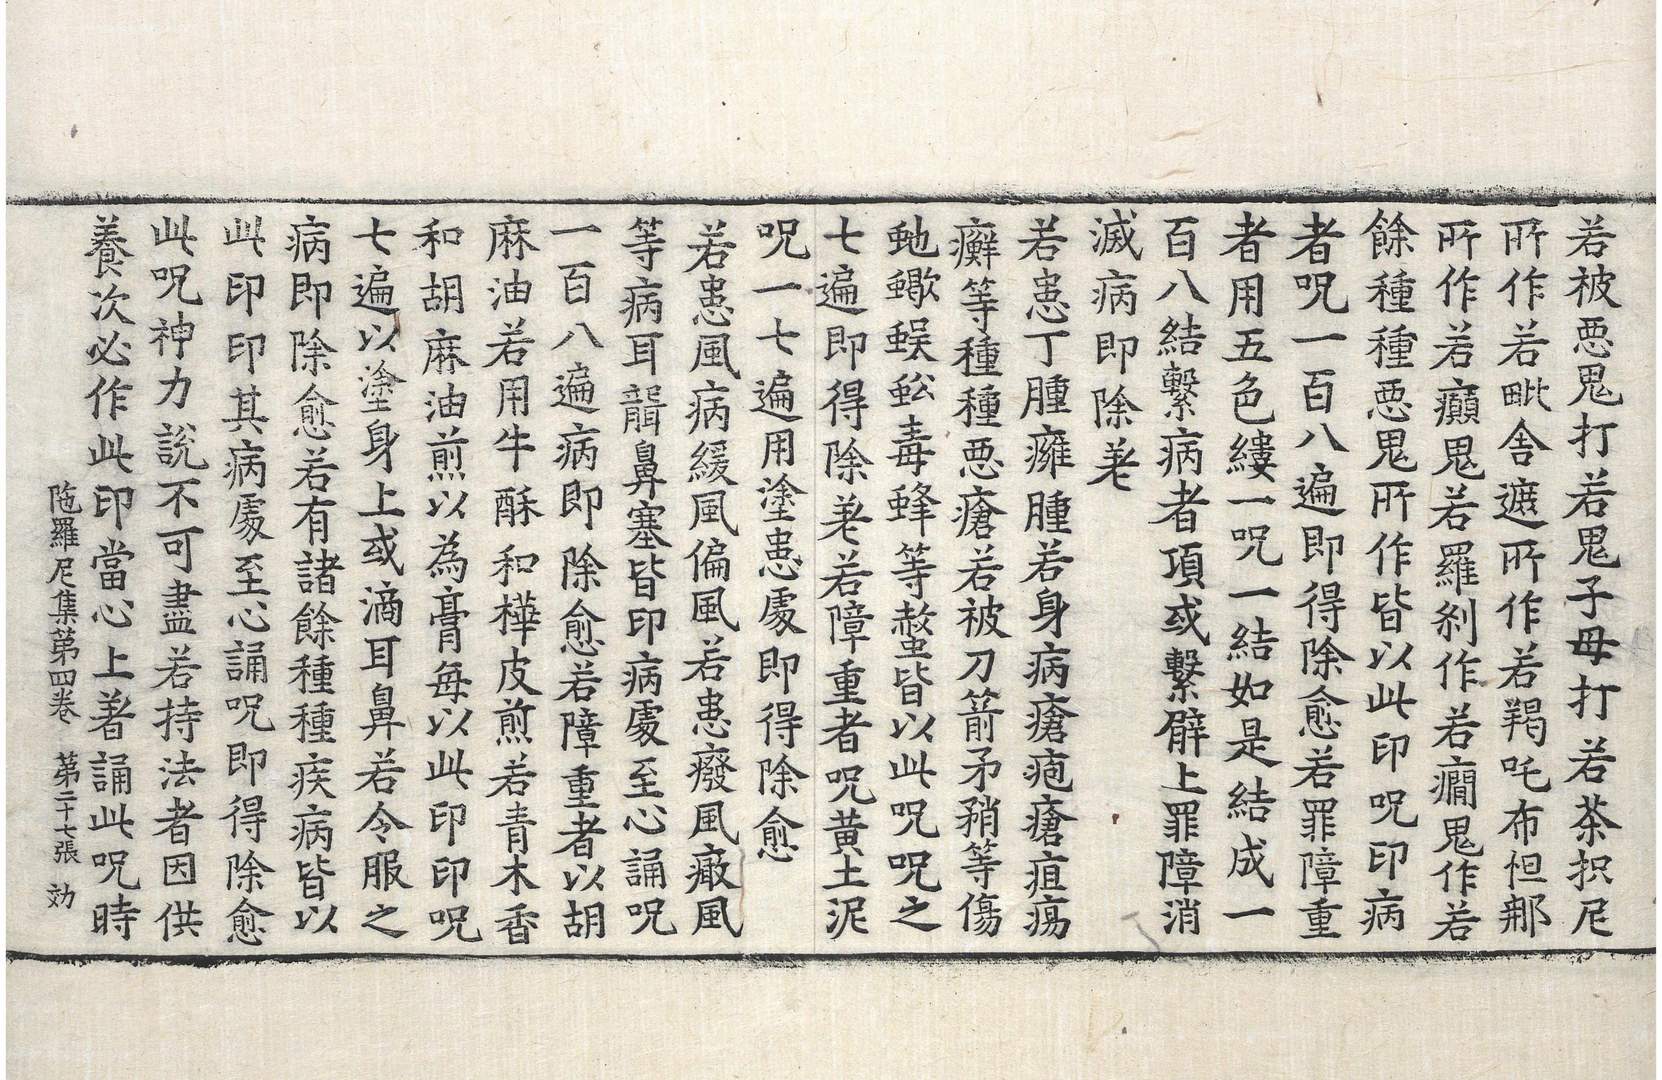 若被惡鬼打若鬼子母打若荼枳尼
所作若毗舍遮所作若羯吒布怛那
所作若癲鬼若羅刹作若癎鬼作若
餘種種惡鬼所作皆以此印呪印病
者呪一百八遍即得除愈若罪障重
者用五色縷一呪一結如是結成一
百八結繫病者項或繫臂上罪障消
滅病即除差
若患丁腫癰腫若身病瘡疱瘡疽瘍
癬等種種惡瘡若被刀箭矛矟等傷
虵蠍蜈蚣毒蜂等螫皆以此呪呪之
七遍即得除差若障重者呪黃土泥
呪一七遍用塗患處即得除愈
若患風病緩風偏風若患癈風瘶風
等病耳聾鼻塞皆印病處至心誦呪
一百八遍病即除愈若障重者以胡
麻油若用牛酥和樺皮煎若青木香
和胡麻油煎以為膏每以此印印呪
七遍以塗身上或滴耳鼻若令服之
病即除愈若有諸餘種種疾病皆以
此印印其病處至心誦呪即得除愈
此呪神力說不可盡若持法者因供
養次必作此印當心上著誦此呪時
陁羅尼集第四卷 第二十七張 効